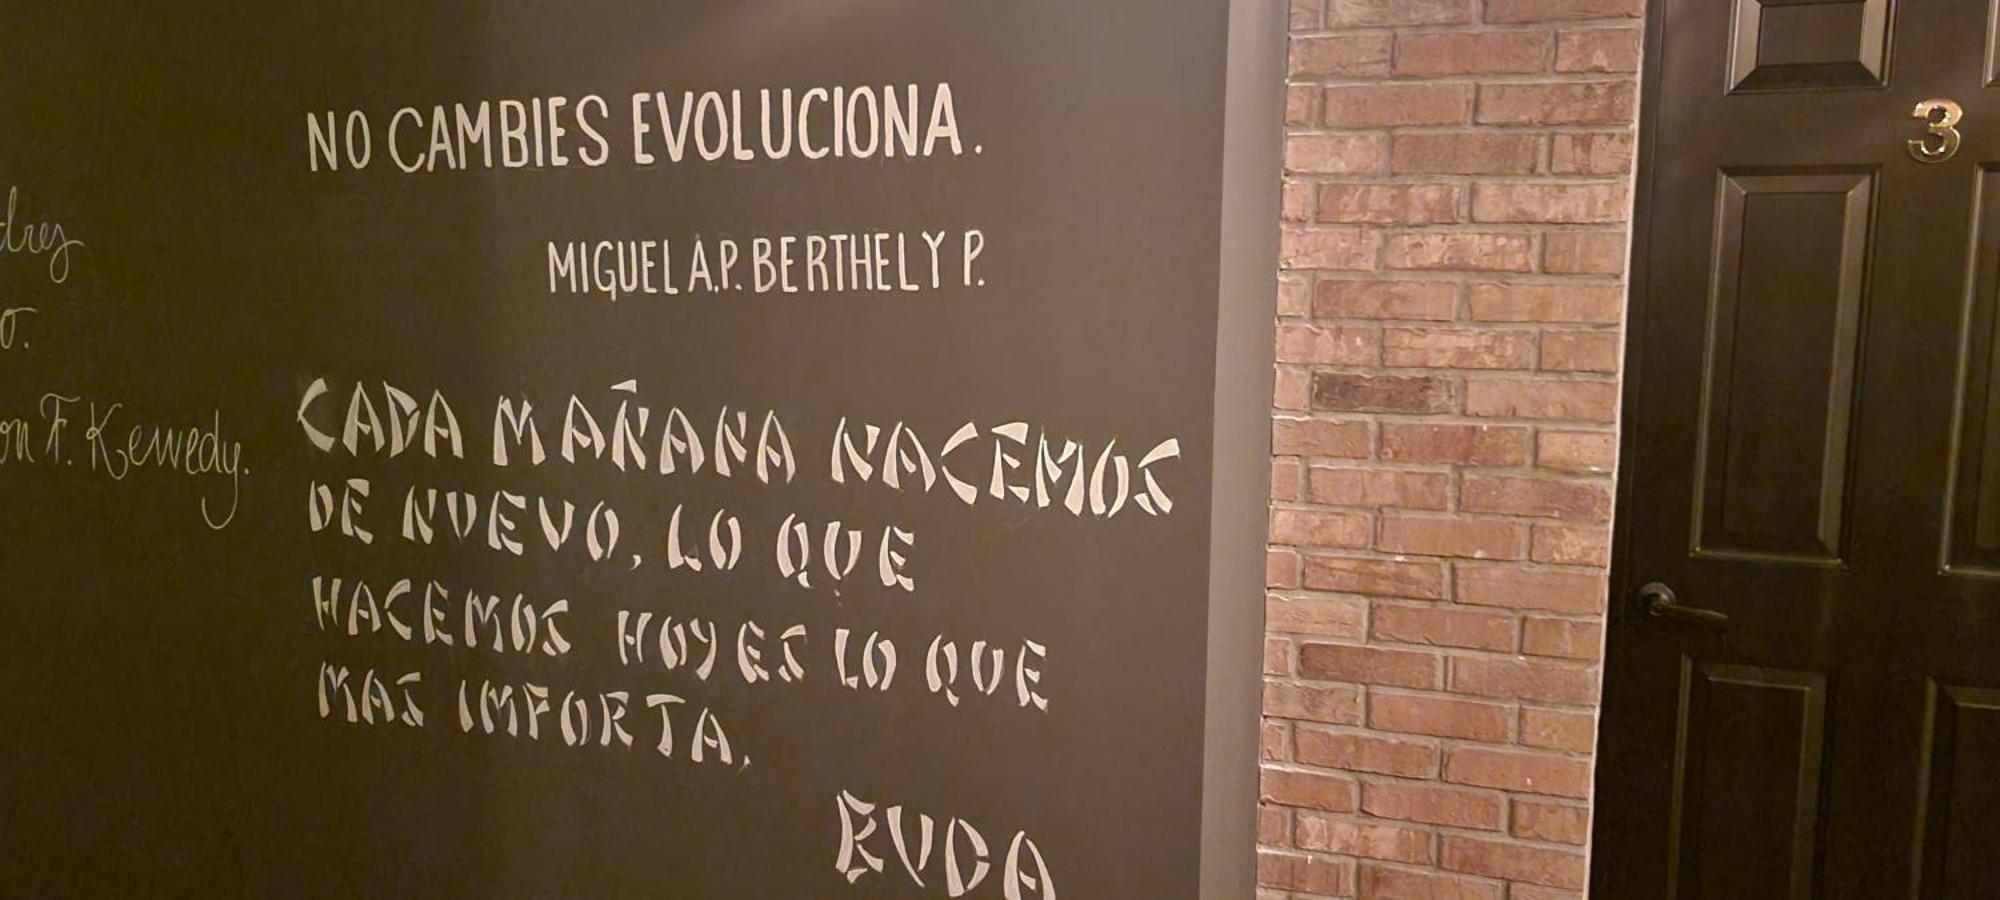 NO CAMBIES EVOLUCIONA.
MIGUEL A.P. BERTHELY P.
CADA MAÑANA NACEMOS
DE NUEVO, LO QUE
HACEMOS HOY ES LO QUE
MAS IMPORTA.
BUDA
F. Kennedy.
3